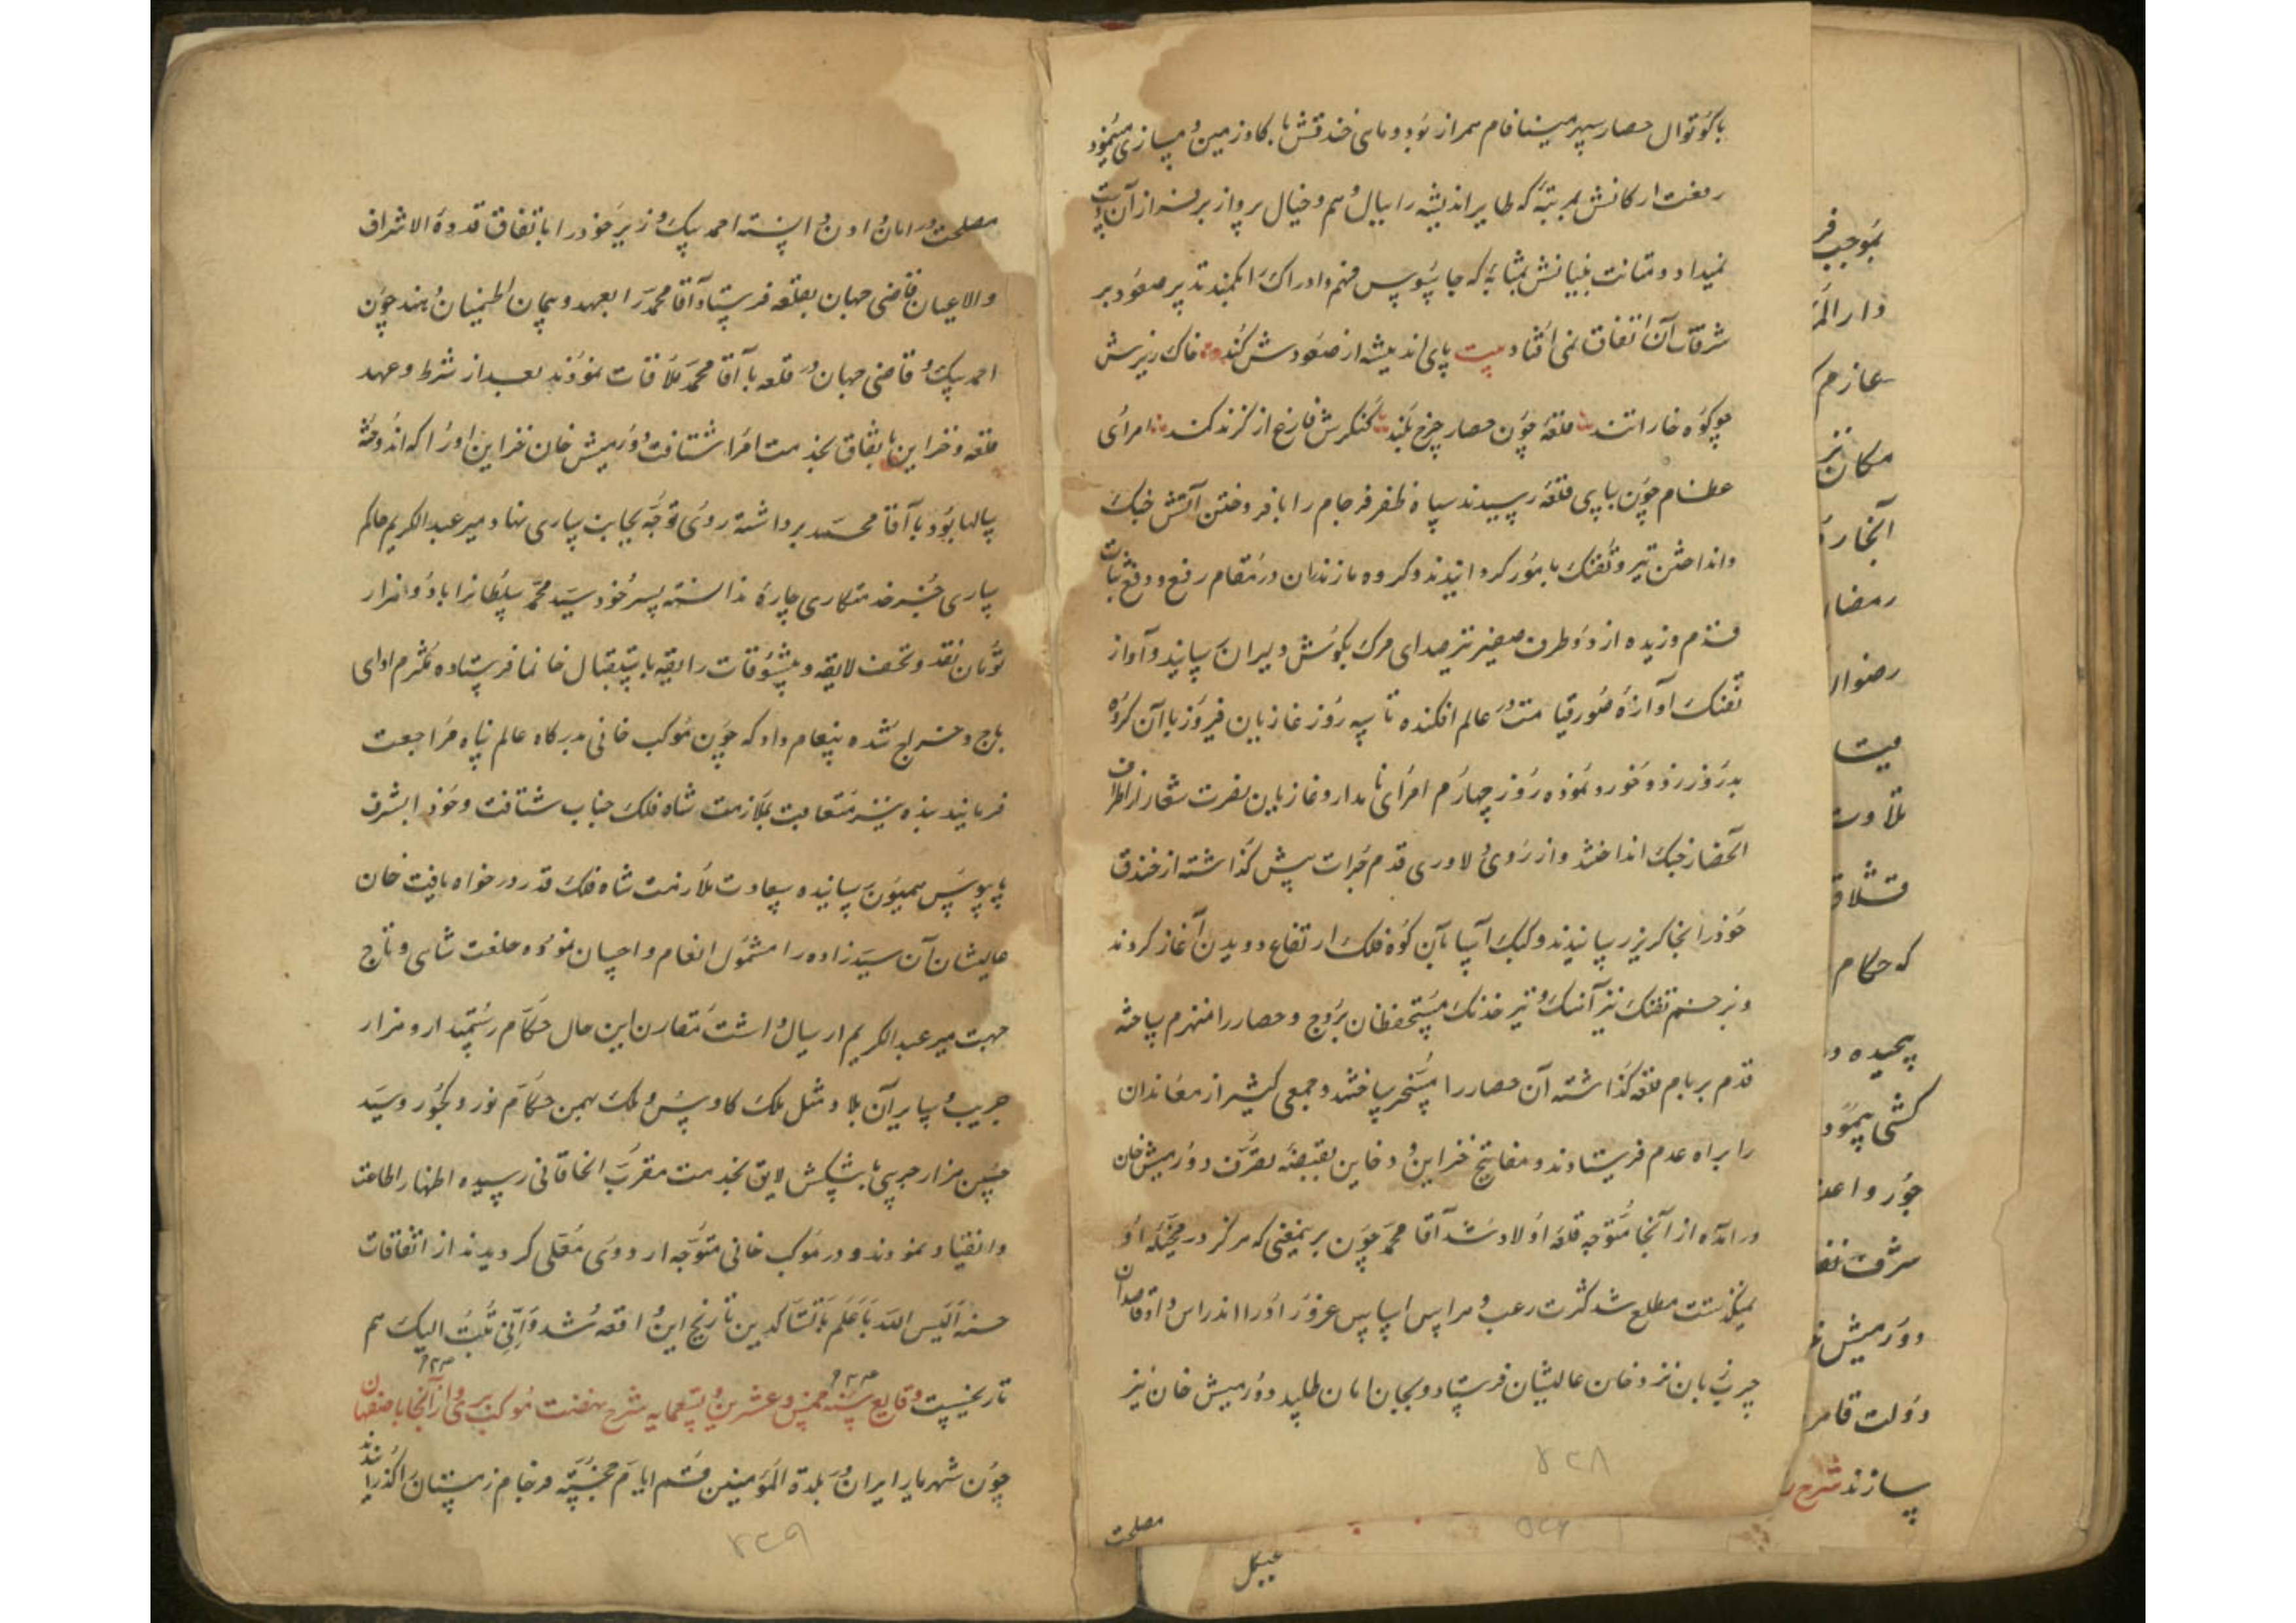 با کوتوال حصار سپهر مینافام همراز بود و ماهی خندقش با گاو زمین دمسازی مینمود
رفعت ارکانش بمرتبهٔ که طایر اندیشه را ببال وهم و خیال پرواز بر فراز آن دست
نمیداد و متانت بنیانش بمثابهٔ که جاسوس فهم و ادراک را بکمند تدبیر صعود بر
شرفات آن اتفاق نمی افتاد بیت پای اندیشه از صعودش کند خاک ریزش
چو کوه خارا تند قلعهٔ چون حصار چرخ بلند کنگرش فارغ از گزند کمند امرای
عظام چون بپای قلعه رسیدند سپاه ظفر فرجام را بافروختن آتش جنگ
و انداختن تیر و تفنک مامور گردانیدند و گروه مازندران در مقام رفع و دفع ثبات
قدم ورزیده از دو طرف صفیر تیر صدای مرک بگوش دلیران رسانید و آواز
تفنک آوازهٔ صور قیامت در عالم افکنده تا سه روز غازیان فیروز با آن گروه
بدروز زد و خورد نموده روز چهارم امرای نامدار و غازیان نصرت شعار از اطراف
آنحصار جنک انداختند و از روی دلاوری قدم جرات پیش گذاشته از خندق
خود را بخاکریز رسانیدند و کبک آسا بآن کوه فلک ارتفاع دویدن آغاز کردند
و بزخم تفنک تیز آهنک و تیر خدنک مستحفظان بروج و حصار را منهزم ساخته
قدم بر بام قلعه گذاشته آن حصار را مسخر ساختند و جمعی کثیر از معاندان
را براه عدم فرستادند و مفاتیح خزاین و دفاین بقبضهٔ تصرف دورمیش خان
درآمده از آنجا متوجه قلعه اولاد شد آقا محمد چون برینمعنی که هرگز در مخیلهٔ او
نمیگذشت مطلع شد کثرت رعب و هراس اساس غرور او را اندراس داد قاصدان
چرب زبان نزد خان عالیشان فرستاد و بجان امان طلبید دورمیش خان نیز
۴۳۸
مصلحت
مصلحت در امان دادن دانسته احمد بیک وزیر خود را باتفاق قدوة الاشراف
والاعیان قاضی جهان بقلعه فرستاد آقا محمد را بعهد و پیمان اطمینان دهند چون
احمد بیک و قاضی جهان در قلعه با آقا محمد ملاقات نمودند بعد از شرط و عهد
قلعه و خزاین باتفاق بخدمت امرا شتافت دورمیش خان خزاین او را که اندوختهٔ
سالها بود با آقا محمد برداشته روی توجه بجانب ساری نهاد میر عبدالکریم حاکم
ساری جز خدمتکاری چارهٔ ندانسته پسر خود سید محمد سلطانرا با دو هزار
تومان نقد و تحف لایقه و تنسوقات رایقه باستقبال خانها فرستاده ملتزم ادای
باج و خراج شده پیغام داد که چون موکب خانی بدرگاه عالم پناه مراجعت
فرمایند بنده نیز متعاقب بملازمت شاه فلک جناب شتافت و خود را بشرف
پایبوس همیون رسانیده سعادت ملازمت شاه فلک قدر در خواه یافت خان
عالیشان آن سید زاده را مشمول انعام و احسان نموده و خلعت شاهی و تاج
جهت میر عبدالکریم ارسال داشت مقارن این حال حکام رستمدار و هزار
جریب و سایر آن بلاد مثل ملک کاوس و ملک بهمن حکام نور و کجور و سید
حسین هزار جریبی با پیشکش لایق بخدمت مقرب الخاقانی رسیده اظهار اطاعت
و انقیاد نمودند و در موکب خانی متوجه اردوی معلی گردیدند از اتفاقات
حسنه الیس الله باعلم بالشاکرین تاریخ این واقعه شد و انی تبت الیک هم
تاریخیست وقایع سنه خمس و عشرین و تسعمایه شرح نهضت موکب و از آنجا باصفهان
چون شهریار ایران در بلدة المومنین قم ایام خجسته فرجام زمستان را گذرانیدند
۴۳۹
بموجب
عازم
رمضا
میت
تلاوت
که حکام
پیچیده
دورمیش
دولت قاهر
سازند شرح